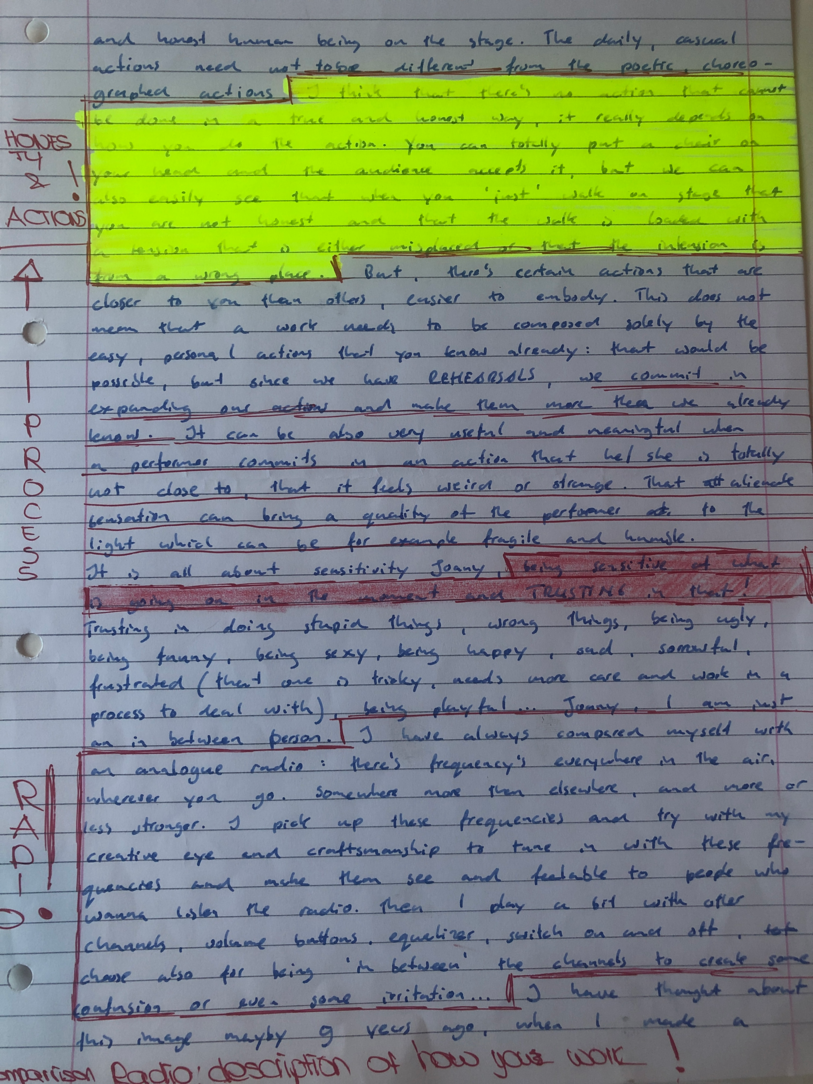 and honest human being on the stage. The daily, casual
actions need not to be different from the poetic, choreo-
graphed actions. I think that there's no action that cannot
be done in a true and honest way, it really depends on
how you do the action. You can totally put a chair on
your head and the audience accepts it, but we can
also easily see that when you 'just' walk on stage that
you are not honest and that the walk is loaded with
a tension that is either misplaced or that the intension is
from a wrong place. But, there's certain actions that are
closer to you than others, easier to embody. This does not
mean that a work needs to be composed solely by the
easy, personal actions that you know already: that would be
possible, but since we have REHEARSALS, we commit in
expanding our actions and make them more then we already
know. It can be also very useful and meaningful when
a performer commits in an action that he/she is totally
not close to, that it feels weird or strange. That alienate
sensation can bring a quality of the performer to the
light which can be for example fragile and humble.
It is all about sensitivity Joany, being sensitive of what
is going on in the moment and TRUSTING in that!
Trusting in doing stupid things, wrong things, being ugly,
being funny, being sexy, being happy, sad, sorrowful,
frustrated (that one is tricky, needs more care and work in a
process to deal with), being playful... Joany, I am just
an in between person. I have always compared myself with
an analogue radio: there's frequency's everywhere in the air,
wherever you go. Somewhere more then elsewhere, and more or
less stronger. I pick up these frequencies and try with my
creative eye and craftsmanship to tune in with these fre-
quencies and make them see and feelable to people who
wanna listen the radio. Then I play a bit with other
channels, volume buttons, equalizer, switch on and off,
choose also for being 'in between' the channels to create some
confusion or even some irritation... I have thought about
this image mayby 9 years ago, when I made a
HONES
TY
&
!
ACTIONS
PROCESS
RADIO!
comparison Radio: description of how your work!